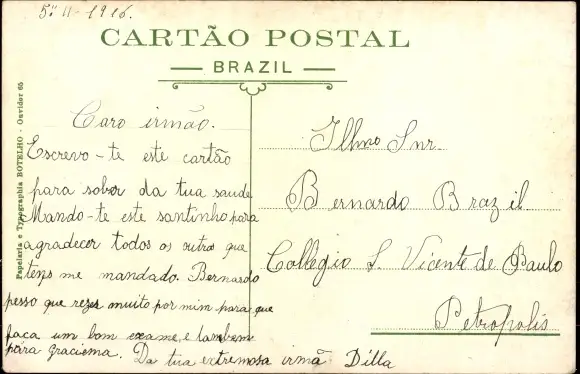 5-11-1916.
CARTÃO POSTAL
BRAZIL
Papelaria e Typographia BOTELHO - Ouvidor 65
Caro irmão.
Escrevo-te este cartão
para sober da tua saude
Mando-te este santinho para
agradecer todos os outros que
tens me mandado. Bernardo
pesso que rezes muito por mim para que
faça um bom exame, e tambem
para Graciema. Da tua extremosa irmã Dilla
Illmo Snr.
Bernardo Brazil
Collegio S. Vicente de Paulo
Petropolis